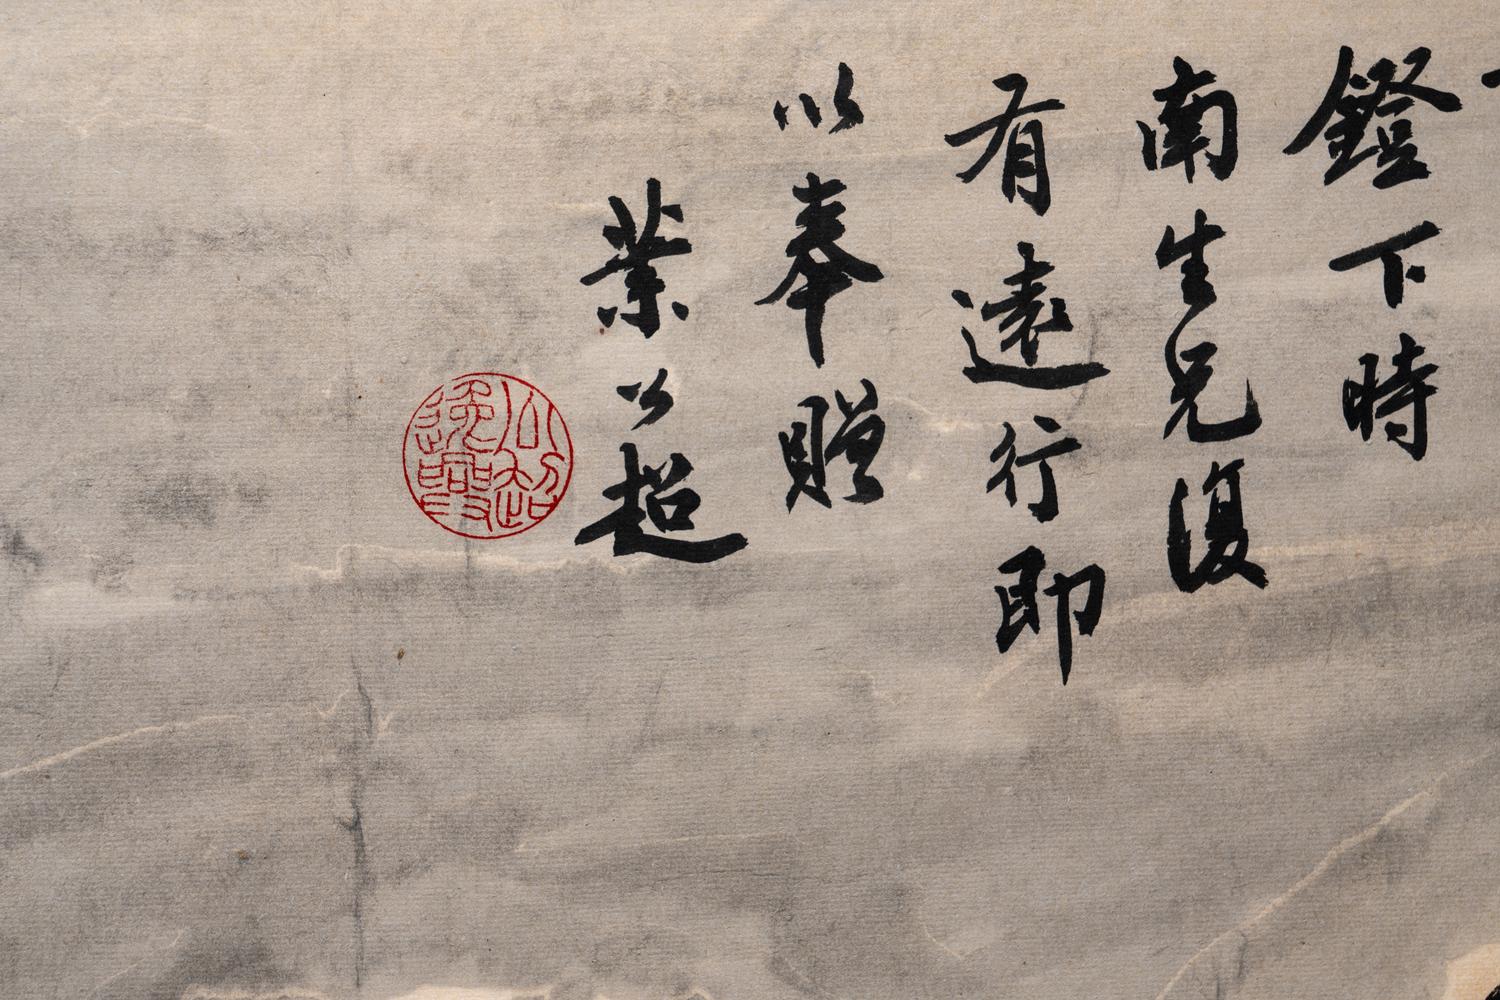 鐙下時
南生兄復
有遠行即
以奉贈
葉公超
公超